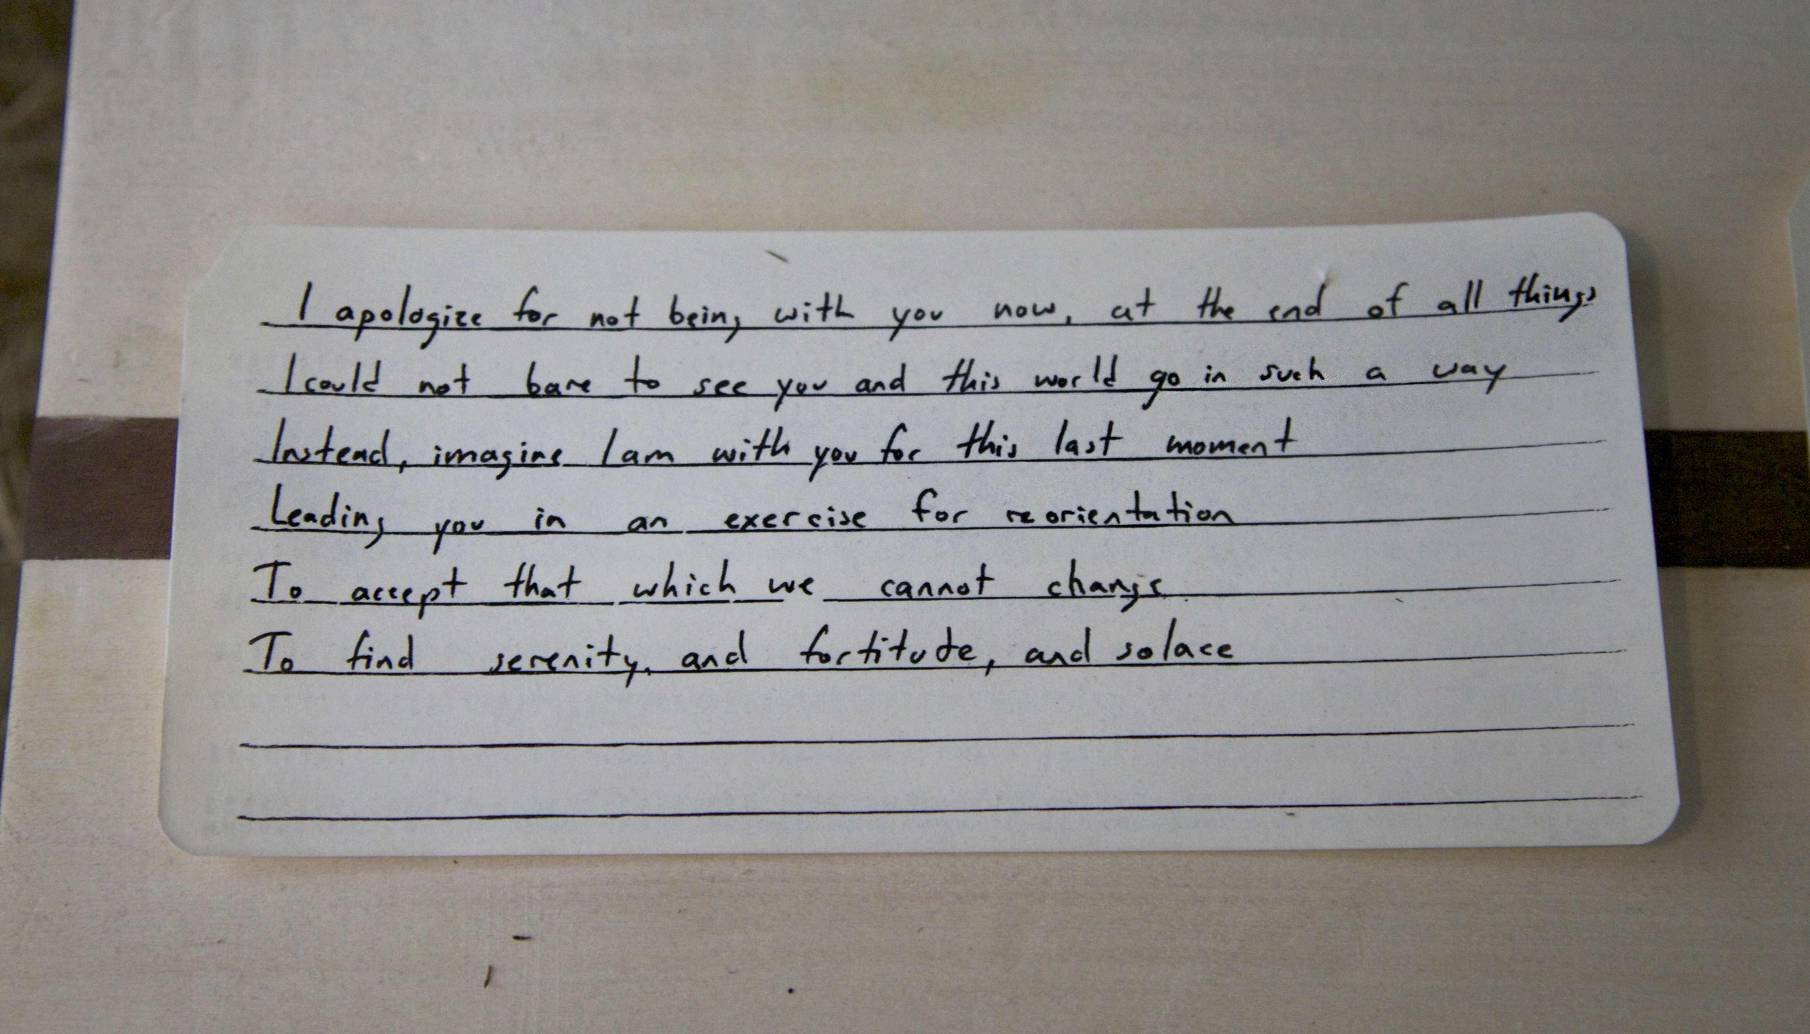 I apologize for not being with you now, at the end of all things
I could not bare to see you and this world go in such a way
Instead, imagine I am with you for this last moment
Leading you in an exercise for reorientation
To accept that which we cannot change
To find serenity, and fortitude, and solace